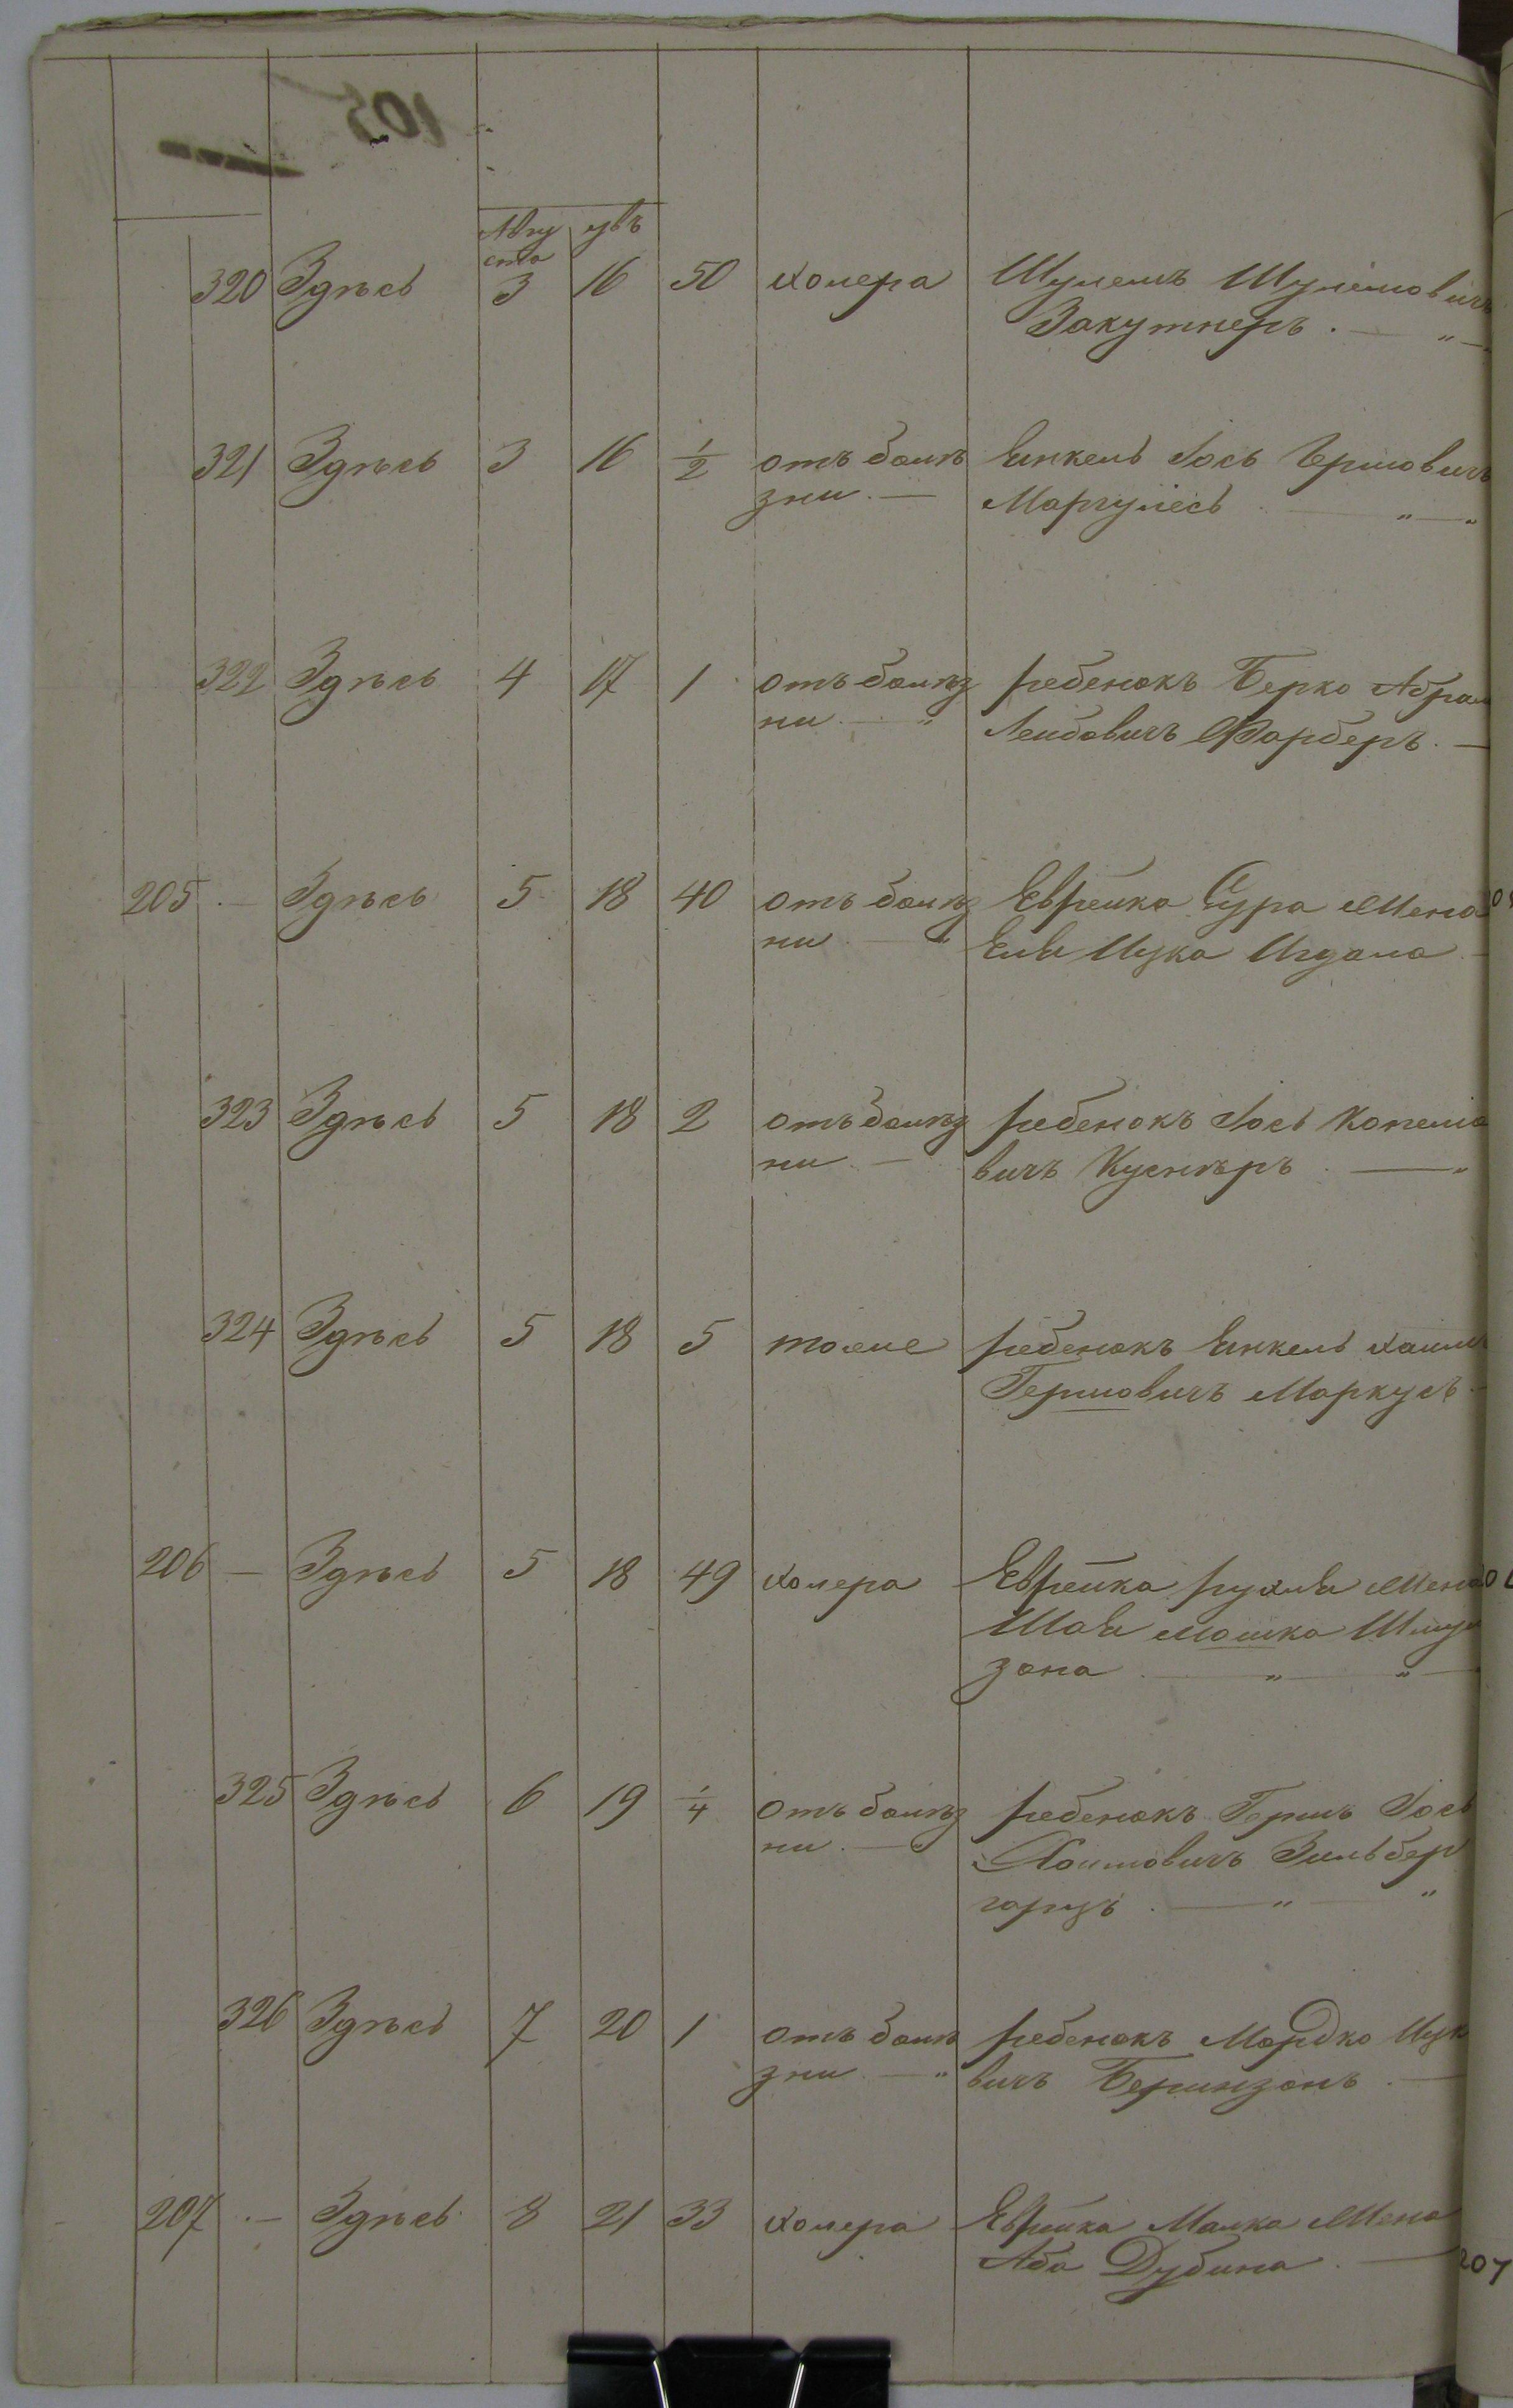 105
Авгу увъ
ста
320 Здѣсь 3 16 50 холера Шулемъ Шулемовичъ
Закутнеръ . — „ —
321 Здѣсь 3 16 1/2 отъ болѣ Янкель Іось Гершовичъ
зни . — Маргулесъ . — „ — „
322 Здѣсь 4 17 1 отъ болѣз ребенокъ Берко Абрам
ни . — „ Лейбовичъ Фарберъ . —
205 . — Здѣсь 5 18 40 отъ болѣз Еврейка Сура Жена
ни . — Ицка
323 Здѣсь 5 18 2 отъ болѣз ребенокъ Іось Копелио
ни . — вичъ Куснѣръ . — „
324 Здѣсь 5 18 5 тоже ребенокъ Янкель Хаимъ
Гершовичъ Маркусъ
206 — Здѣсь 5 18 49 холера Еврейка Рухля Жена
Шая Мошка Шмул
зона . — „ — „ —
325 Здѣсь 6 19 1/4 отъ болѣз ребенокъ Гершъ Іось
ни . — Хаимовичъ Зильбер
гарцъ . — „ — „
326 Здѣсь 7 20 1 отъ болѣ ребенокъ Мордко Ицк
зни . — „ вичъ Беринзонъ . —
207 . — Здѣсь 8 21 33 холера Еврейка Малка Жена
Аба Дубина . — 207